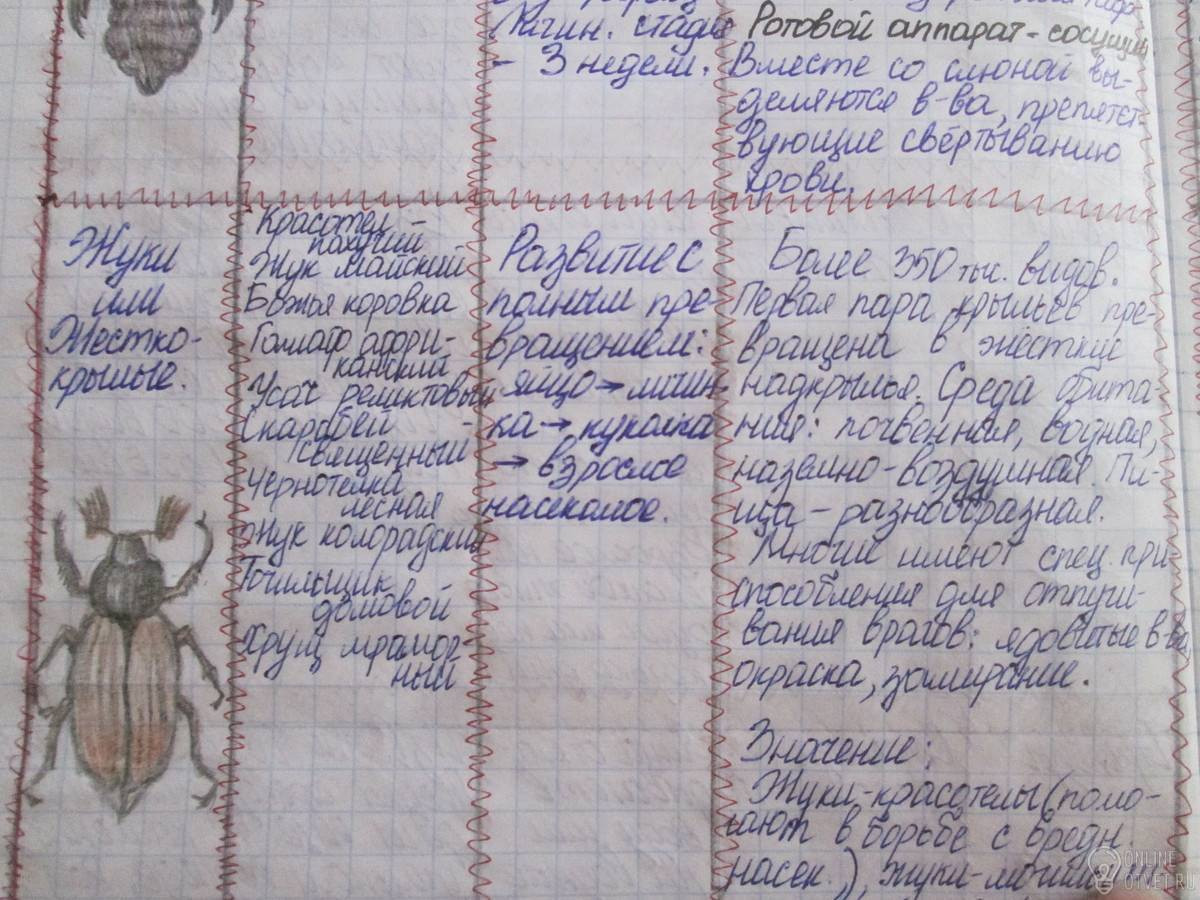 Личин. стадия
- 3 недели.
Ротовой аппарат - сосущий
Вместе со слюной вы-
деляются в-ва, препятст-
вующие свёртыванию
крови.
Жуки
или
Жестко-
крылые.
Красотел -
пахучий
Жук майский
Божья коровка
Голиаф афри-
канский
Усач реликтовый
Скарабей -
священный
Чернотелка
лесная
Жук колорадский
Точильщик
домовой
Хрущ мрамор-
ный
Развитие с
полным пре-
вращением:
яйцо → личин-
ка → куколка
→ взрослое
насекомое.
Более 350 тыс. видов.
Первая пара крыльев пре-
вращена в жесткие
надкрылья. Среда обита-
ния: почвенная, водная,
наземно-воздушная. Пи-
ща - разнообразная.
Многие имеют спец. при-
способления для отпуги-
вания врагов: ядовитые в-ва,
окраска, замирание.
Значение:
Жуки-красотелы (помо-
гают в борьбе с вредн.
насек.), жуки-
ONLINE
OTVET.RU